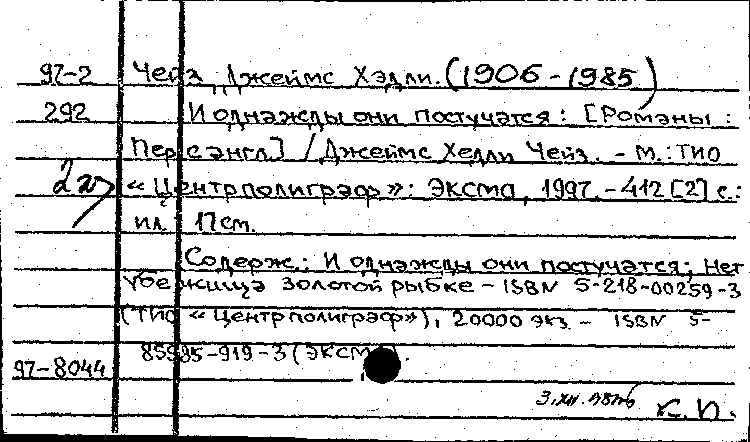 97-2 Чейз, Джеймс Хэдли. (1906-1985)
292 И однажды они постучатся: [Романы:
Пер. с англ.] / Джеймс Хедли Чейз. - М.: ТИО
«Центрполиграф»: ЭКСМО, 1997. - 412 [2] с.:
ил. 17 см.
Содерж.: И однажды они постучатся; Нет
убежища золотой рыбке - ISBN 5-218-00259-3
(ТИО «Центрполиграф»), 20000 экз. - ISBN 5-
85585-919-3 (ЭКСМО).
97-8044
К.П.